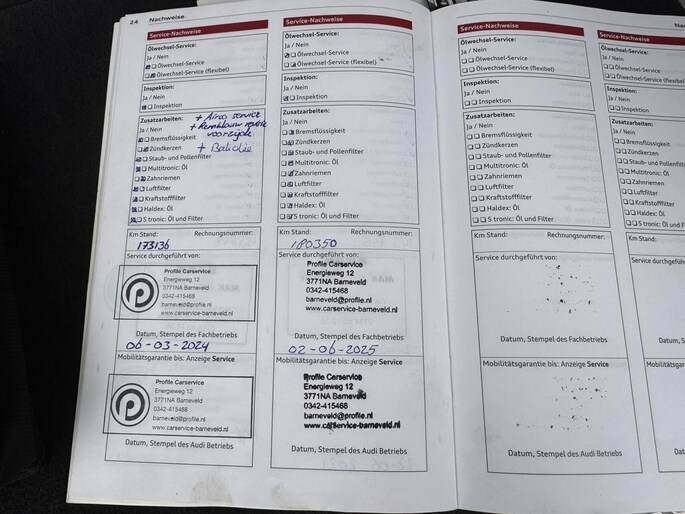 24 Nachweise
Service-Nachweise
Ölwechsel-Service:
Ja / Nein
Ölwechsel-Service
Ölwechsel-Service (flexibel)
Inspektion:
Ja / Nein
Inspektion
Zusatzarbeiten:
Ja / Nein
Bremsflüssigkeit
Zündkerzen
Staub- und Pollenfilter
Multitronic: Öl
Zahnriemen
Luftfilter
Kraftstofffilter
Haldex: Öl
S tronic: Öl und Filter
+ Airco service
voorzijde
Km Stand: Rechnungsnummer:
173136
Service durchgeführt von:
Profile Carservice
Energieweg 12
3771NA Barneveld
0342-415468
barneveld@profile.nl
www.carservice-barneveld.nl
Datum, Stempel des Fachbetriebs
06-03-2024
Mobilitätsgarantie bis: Anzeige Service
Profile Carservice
Energieweg 12
3771NA Barneveld
0342-415468
barneveld@profile.nl
www.carservice-barneveld.nl
Datum, Stempel des Audi Betriebs
Service-Nachweise
Ölwechsel-Service:
Ja / Nein
Ölwechsel-Service
Ölwechsel-Service (flexibel)
Inspektion:
Ja / Nein
Inspektion
Zusatzarbeiten:
Ja / Nein
Bremsflüssigkeit
Zündkerzen
Staub- und Pollenfilter
Multitronic: Öl
Zahnriemen
Luftfilter
Kraftstofffilter
Haldex: Öl
S tronic: Öl und Filter
Km Stand: Rechnungsnummer:
180350
Service durchgeführt von:
Profile Carservice
Energieweg 12
3771NA Barneveld
0342-415468
barneveld@profile.nl
www.carservice-barneveld.nl
Datum, Stempel des Fachbetriebs
02-06-2025
Mobilitätsgarantie bis: Anzeige Service
Profile Carservice
Energieweg 12
3771NA Barneveld
0342-415468
barneveld@profile.nl
www.carservice-barneveld.nl
Datum, Stempel des Audi Betriebs
Service-Nachweise
Ölwechsel-Service:
Ja / Nein
Ölwechsel-Service
Ölwechsel-Service (flexibel)
Inspektion:
Ja / Nein
Inspektion
Zusatzarbeiten:
Ja / Nein
Bremsflüssigkeit
Zündkerzen
Staub- und Pollenfilter
Multitronic: Öl
Zahnriemen
Luftfilter
Kraftstofffilter
Haldex: Öl
S tronic: Öl und Filter
Km Stand: Rechnungsnummer:
Service durchgeführt von:
Datum, Stempel des Fachbetriebs
Mobilitätsgarantie bis: Anzeige Service
Datum, Stempel des Audi Betriebs
Service-Nachweise
Ölwechsel-Service:
Ja / Nein
Ölwechsel-Service
Ölwechsel-Service (flexibel)
Inspektion:
Ja / Nein
Inspektion
Zusatzarbeiten:
Ja / Nein
Bremsflüssigkeit
Zündkerzen
Staub- und Pollenfilter
Multitronic: Öl
Zahnriemen
Luftfilter
Kraftstofffilter
Haldex: Öl
S tronic: Öl und Filter
Km Stand:
Service durchgeführt
Datum, Stempel
Mobilitätsgarantie
Datum, Ste